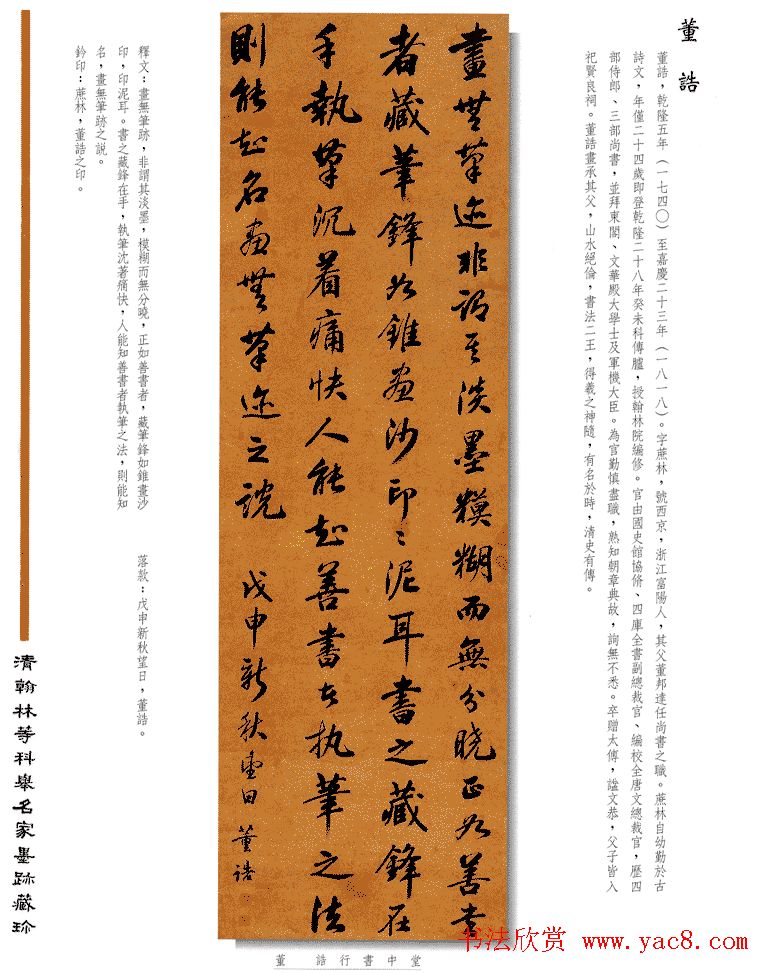 董誥
董誥，乾隆五年（一七四〇）至嘉慶二十三年（一八一八）。字蔗林，號西京，浙江富陽人，其父董邦達任尚書之職。蔗林自幼勤於古
詩文，年僅二十四歲即登乾隆二十八年癸未科傳臚，授翰林院編修。官由國史館協脩、四庫全書副總裁官、編校全唐文總裁官，歷四
部侍郎、三部尚書，並拜東閣、文華殿大學士及軍機大臣。為官勤慎盡職，熟知朝章典故，詢無不悉。卒贈太傅，諡文恭，父子皆入
祀賢良祠。董誥畫承其父，山水絕倫，書法二王，得羲之神隨，有名於時，清史有傳。
畫無筆迹非謂其淡墨糢糊而無分曉正如善書
者藏筆鋒如錐畫沙印印泥耳書之藏鋒在
手執筆沉着痛快人能知善書者执筆之法
則能知名畫無筆迹之説 戊申新秋望日 董誥
釋文：畫無筆跡，非謂其淡墨，模糊而無分曉，正如善書者，藏筆鋒如錐畫沙
印，印泥耳。書之藏鋒在手，執筆沈著痛快，人能知善書者執筆之法，則能知
名，畫無筆跡之說。
落款：戊申新秋望日，董誥。
鈐印：蔗林，董誥之印。
清翰林等科舉名家墨跡藏珍
董誥行書中堂
书法欣赏 www.yac8.com